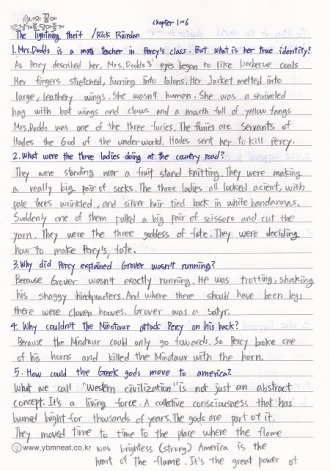 chapter 1~6
The lightning theif / Rick Riordan
1. Mrs. Dodds is a math teacher in Percy's class. But what is her true identity?
As Percy described her, Mrs. Dodds's eyes began to like barbecue coals
Her fingers stretched, turning into talons. Her Jacket melted into
large, leathery wings. She wasn't human. She was a shriveled
hag with bat wings and claws and a mouth full of yellow fangs
Mrs. Dodds was one of the three furies. The furies are servants of
Hades the God of the underworld. Hades sent her to kill Percy.
2. What were the three ladies doing at the country road?
They were standing near a fruit stand knitting. They were making
a really big pair of socks. The three ladies all looked acient, with
pale faces wrinkled, and silver hair tied back in white bandannas.
Suddenly one of them pulled a big pair of scissors and cut the
yarn. They were the three goddess of fate. They were deciding
how to make Percy's fate.
3. Why did Percy explained Grover wasn't running?
Because Grover wasn't exactly running. He was trotting, shaking
his shaggy hindquarters. And where there should have been legs
there were cloven hooves. Grover was a satyr.
4. Why couldn't the Minotaur attack Percy on his back?
Because the Minotaur could only go forwards. So Percy broke one
of his horns and killed the Minotaur with the horn.
5. How could the Greek gods move to america?
What we call "Western civilization" is not just an abstract
concept. It's a living force. A collective consciousness that has
burned bright for thousands of years. The gods are part of it.
They moved time to time to the place where the flame
www.ybmneat.co.kr was brightness (strong) America is the
heart of the flame. It's the great power of